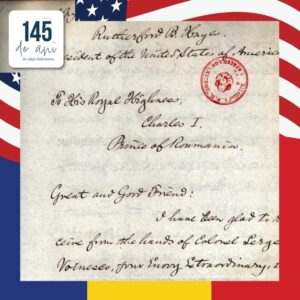 145
de ani
Rutherford B. Hayes
President of the United States of America
To His Royal Highness,
Charles I.
Prince of Roumania.
Great and Good Friend:
I have been glad to re
ceive from the hands of Colonel Serge
Voinesco, your Envoy Extraordinary,